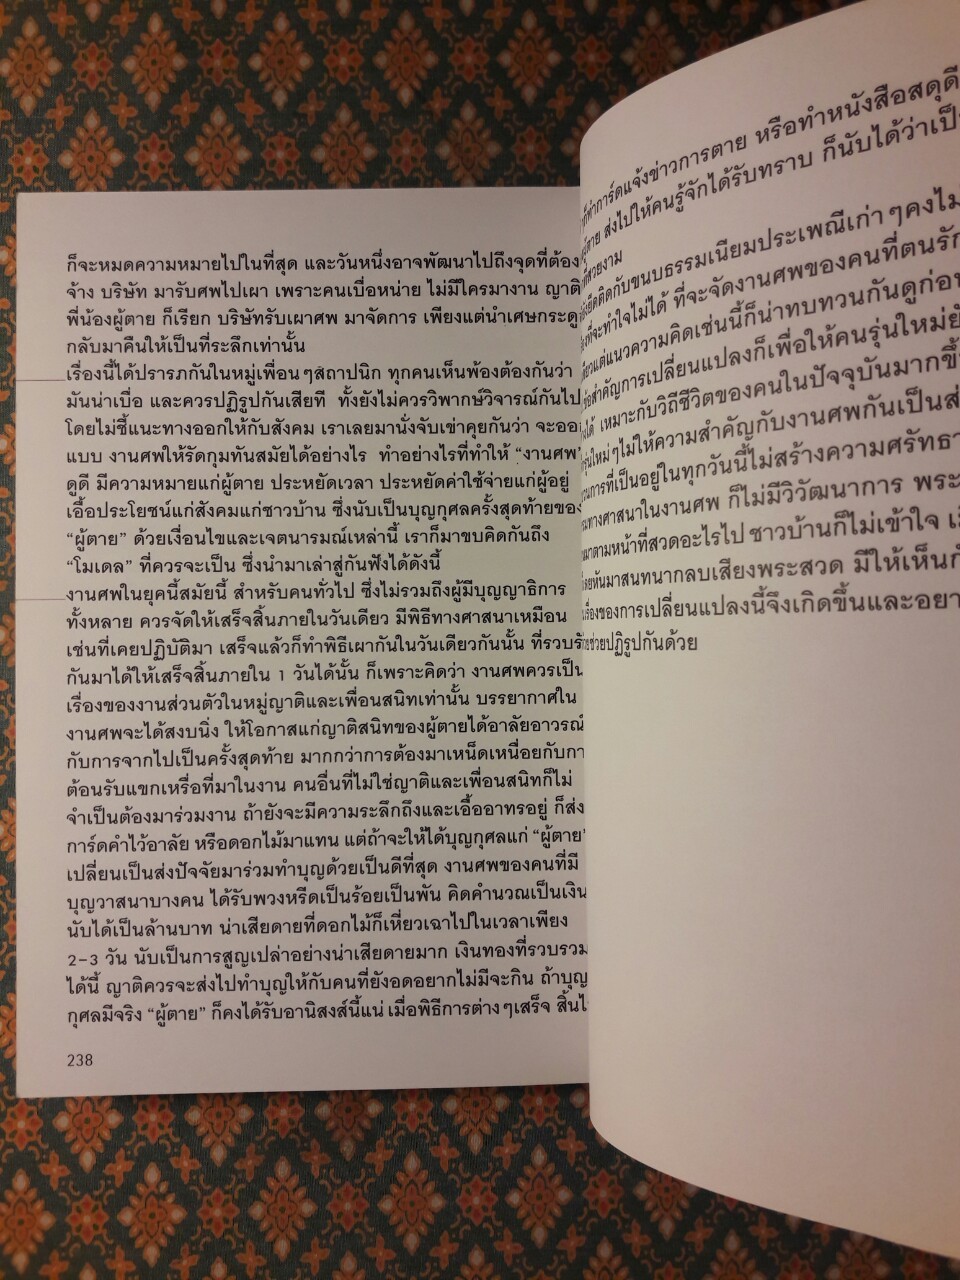 ก็จะหมดความหมายไปในที่สุด และวันหนึ่งอาจพัฒนาไปถึงจุดที่ต้อง
จ้าง บริษัท มารับศพไปเผา เพราะคนเบื่อหน่าย ไม่มีใครมางาน ญาติ
พี่น้องผู้ตาย ก็เรียก บริษัทรับเผาศพ มาจัดการ เพียงแต่นำเศษกระดู
กลับมาคืนให้เป็นที่ระลึกเท่านั้น
เรื่องนี้ได้ปรารภกันในหมู่เพื่อนๆสถาปนิก ทุกคนเห็นพ้องต้องกันว่า
มันน่าเบื่อ และควรปฏิรูปกันเสียที ทั้งยังไม่ควรวิพากษ์วิจารณ์กันไป
โดยไม่ชี้แนะทางออกให้กับสังคม เราเลยมานั่งจับเข่าคุยกันว่า จะออก
แบบ งานศพให้รัดกุมทันสมัยได้อย่างไร ทำอย่างไรที่ทำให้ “งานศพ”
ดูดี มีความหมายแก่ผู้ตาย ประหยัดเวลา ประหยัดค่าใช้จ่ายแก่ผู้อยู่
เอื้อประโยชน์แก่สังคมแก่ชาวบ้าน ซึ่งนับเป็นบุญกุศลครั้งสุดท้ายของ
“ผู้ตาย” ด้วยเงื่อนไขและเจตนารมณ์เหล่านี้ เราก็มาขบคิดกันถึง
“โมเดล” ที่ควรจะเป็น ซึ่งนำมาเล่าสู่กันฟังได้ดังนี้
งานศพในยุคนี้สมัยนี้ สำหรับคนทั่วไป ซึ่งไม่รวมถึงผู้มีบุญญาธิการ
ทั้งหลาย ควรจัดให้เสร็จสิ้นภายในวันเดียว มีพิธีทางศาสนาเหมือน
เช่นที่เคยปฏิบัติมา เสร็จแล้วก็ทำพิธีเผากันในวันเดียวกันนั้น ที่รวบรัด
กันมาได้ให้เสร็จสิ้นภายใน 1 วันได้นั้น ก็เพราะคิดว่า งานศพควรเป็น
เรื่องของงานส่วนตัวในหมู่ญาติและเพื่อนสนิทเท่านั้น บรรยากาศใน
งานศพจะได้สงบนิ่ง ให้โอกาสแก่ญาติสนิทของผู้ตายได้อาลัยอาวรณ์
กับการจากไปเป็นครั้งสุดท้าย มากกว่าการต้องมาเหน็ดเหนื่อยกับกา
ต้อนรับแขกเหรื่อที่มาในงาน คนอื่นที่ไม่ใช่ญาติและเพื่อนสนิทก็ไม่
จำเป็นต้องมาร่วมงาน ถ้ายังจะมีความระลึกถึงและเอื้ออาทรอยู่ ก็ส่ง
การ์ดคำไว้อาลัย หรือดอกไม้มาแทน แต่ถ้าจะให้ได้บุญกุศลแก่ “ผู้ตาย”
เปลี่ยนเป็นส่งปัจจัยมาร่วมทำบุญด้วยเป็นดีที่สุด งานศพของคนที่มี
บุญวาสนาบางคน ได้รับพวงหรีดเป็นร้อยเป็นพัน คิดคำนวณเป็นเงิน
นับได้เป็นล้านบาท น่าเสียดายที่ดอกไม้ก็เหี่ยวเฉาไปในเวลาเพียง
2-3 วัน นับเป็นการสูญเปล่าอย่างน่าเสียดายมาก เงินทองที่รวบรวม
ได้นี้ ญาติควรจะส่งไปทำบุญให้กับคนที่ยังอดอยากไม่มีจะกิน ถ้าบุญ
กุศลมีจริง “ผู้ตาย” ก็คงได้รับอานิสงส์นี้แน่ เมื่อพิธีการต่างๆเสร็จ สิ้นไ
238
ก็ทำการ์ดแจ้งข่าวการตาย หรือทำหนังสือสดุดี
ส่งไปให้คนรู้จักได้รับทราบ ก็นับได้ว่าเป็น
ที่สวยงาม
ยึดติดกับขนบธรรมเนียมประเพณีเก่าๆคงไม่
ที่จะทำใจไม่ได้ ที่จะจัดงานศพของคนที่ตนรัก
แต่แนวความคิดเช่นนี้ก็น่าทบทวนกันดูก่อน
สำคัญการเปลี่ยนแปลงก็เพื่อให้คนรุ่นใหม่ยั
ได้ เหมาะกับวิถีชีวิตของคนในปัจจุบันมากขึ้
รุ่นใหม่ๆไม่ให้ความสำคัญกับงานศพกันเป็นส่
การที่เป็นอยู่ในทุกวันนี้ไม่สร้างความศรัทธา
ทางศาสนาในงานศพ ก็ไม่มีวิวัฒนาการ พระ
มาตามหน้าที่สวดอะไรไป ชาวบ้านก็ไม่เข้าใจ
หันมาสนทนากลบเสียงพระสวด มีให้เห็นกั
เรื่องของการเปลี่ยนแปลงนี้จึงเกิดขึ้นและอยา
ช่วยปฏิรูปกันด้วย